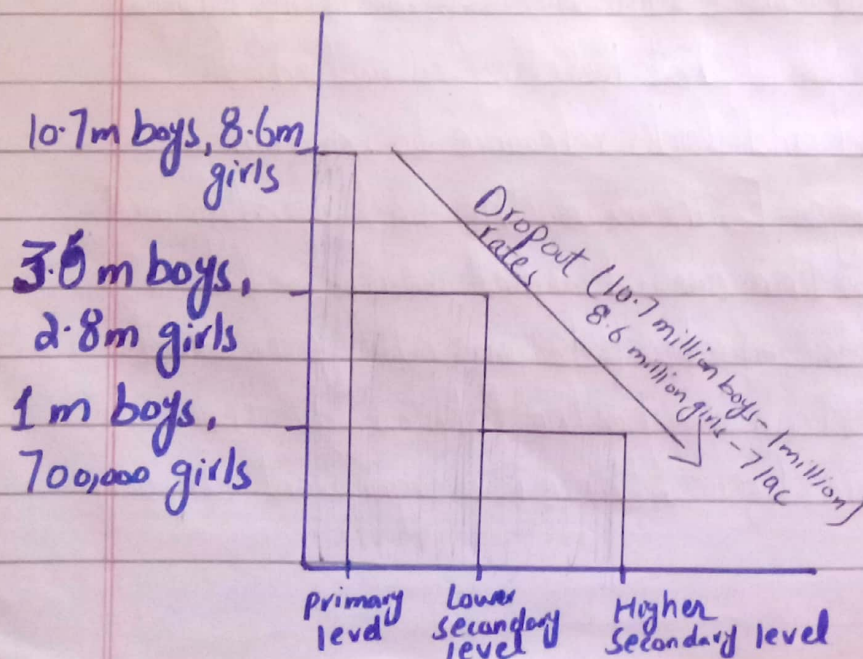 10.7m boys, 8.6m
girls
3.6 m boys,
2.8m girls
1 m boys,
700,000 girls
Dropout (10.7 million boys - 1 million)
rates 8.6 million girls - 7 lac
primary
level
Lower
secondary
level
Higher
secondary level